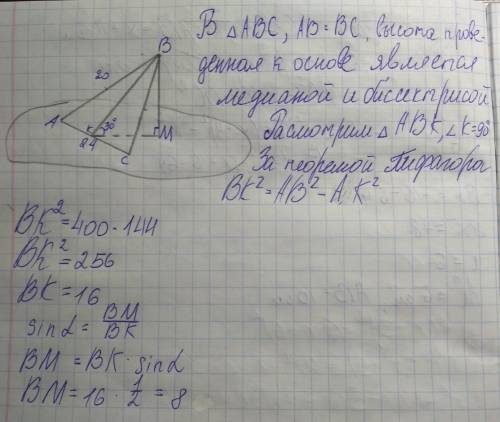 В △ABC, AB=BC, Высота прове-
денная к основе является
медианой и биссектрисой
Расмотрим △ ABK, ∠K=90°
За теоремой Пифагора
BK²=AB²-AK²
B
20
A
K
30°
M
24
C
BK²=400-144
BK²=256
BK=16
sinα = BM/BK
BM = BK · sinα
BM = 16 · 1/2 = 8